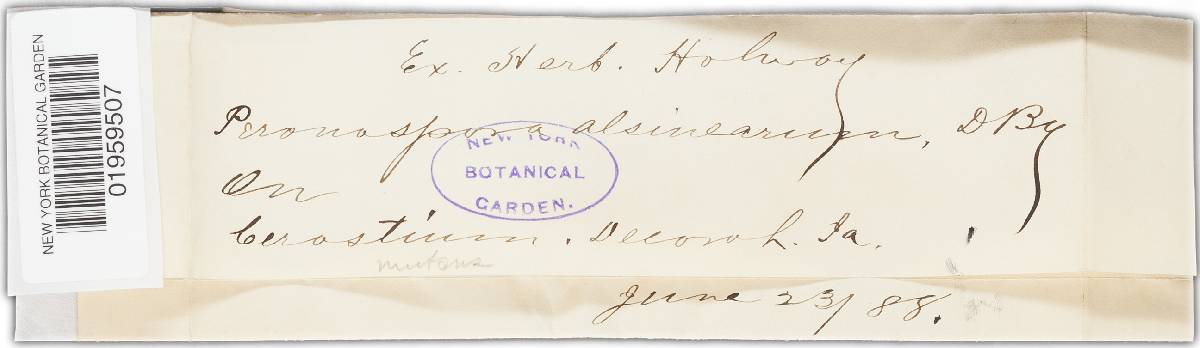 NEW YORK BOTANICAL GARDEN
01959507
Ex. Herb. Holway
Peronospora alsinearum, DBy
On
Cerastium. Decorah. Ia.
nutans
June 23/88.
NEW YORK
BOTANICAL
GARDEN.